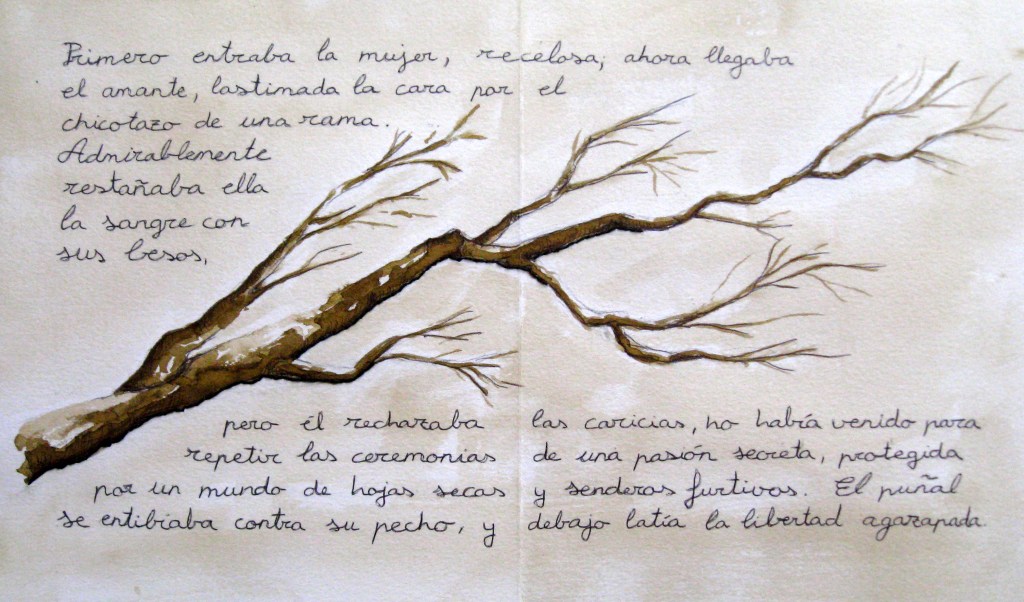 Primero entraba la mujer, recelosa; ahora llegaba
el amante, lastimada la cara por el
chicotazo de una rama.
Admirablemente
restañaba ella
la sangre con
sus besos,
pero él rechazaba las caricias, no había venido para
repetir las ceremonias de una pasión secreta, protegida
por un mundo de hojas secas y senderos furtivos. El puñal
se entibiaba contra su pecho, y debajo latía la libertad agazapada.